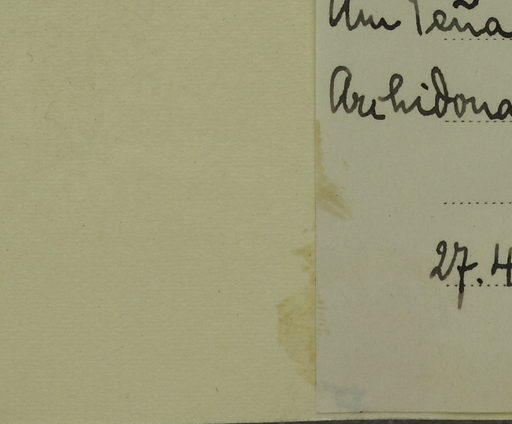 Am Peña
Archidona
27.4